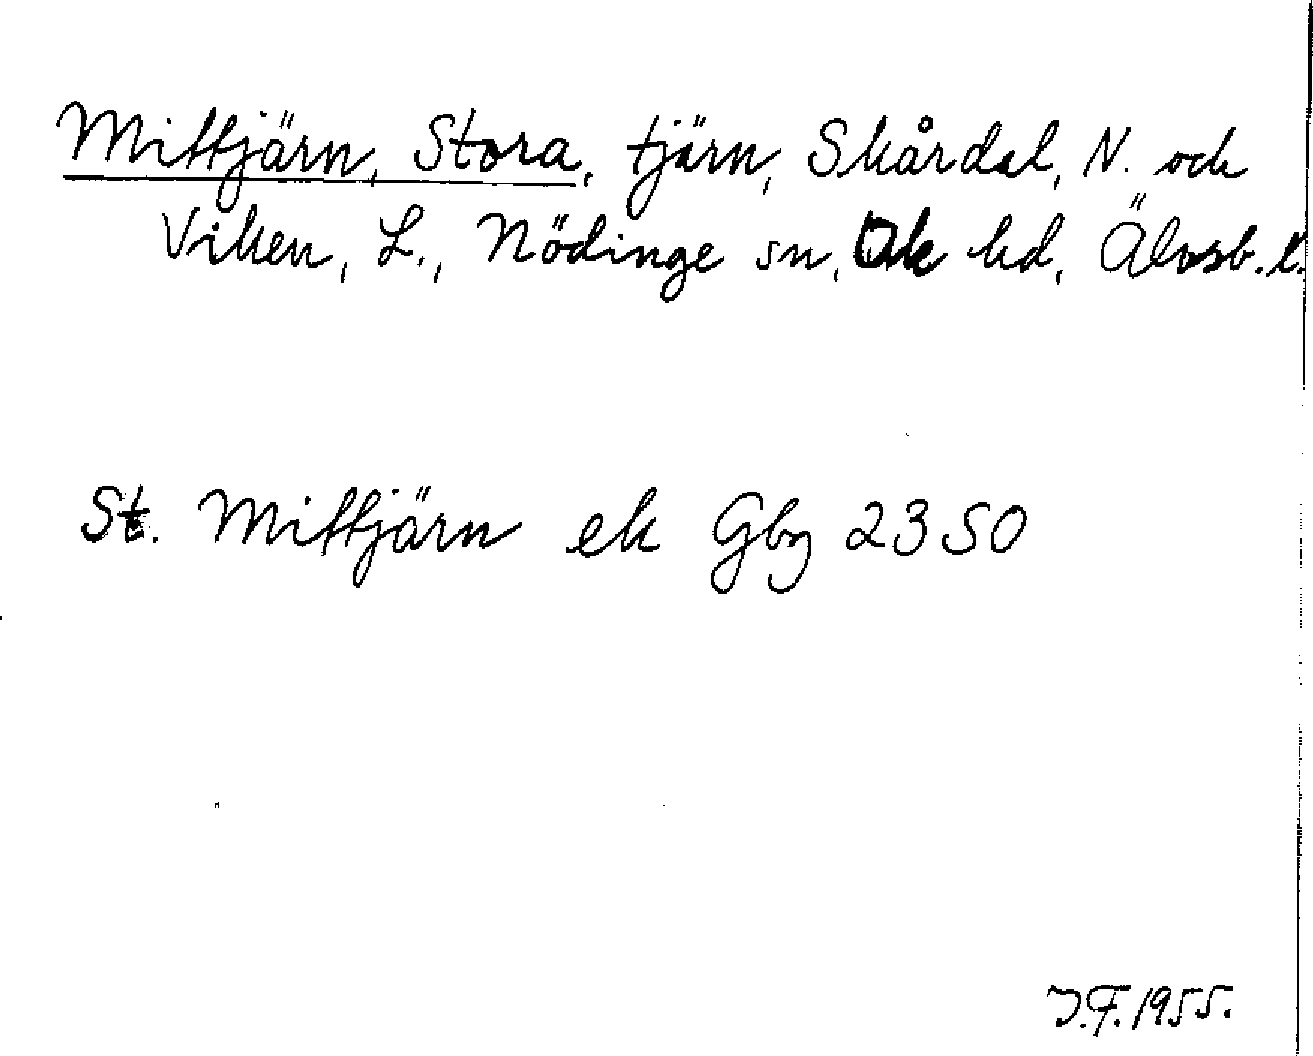 Mittjärn, Stora, tjärn, Skårdal, N. och
Viken, L., Nödinge sn, Ale hd, Älvsb. l.
St. Mittjärn ek Gbg 2350
J.F. 1955.